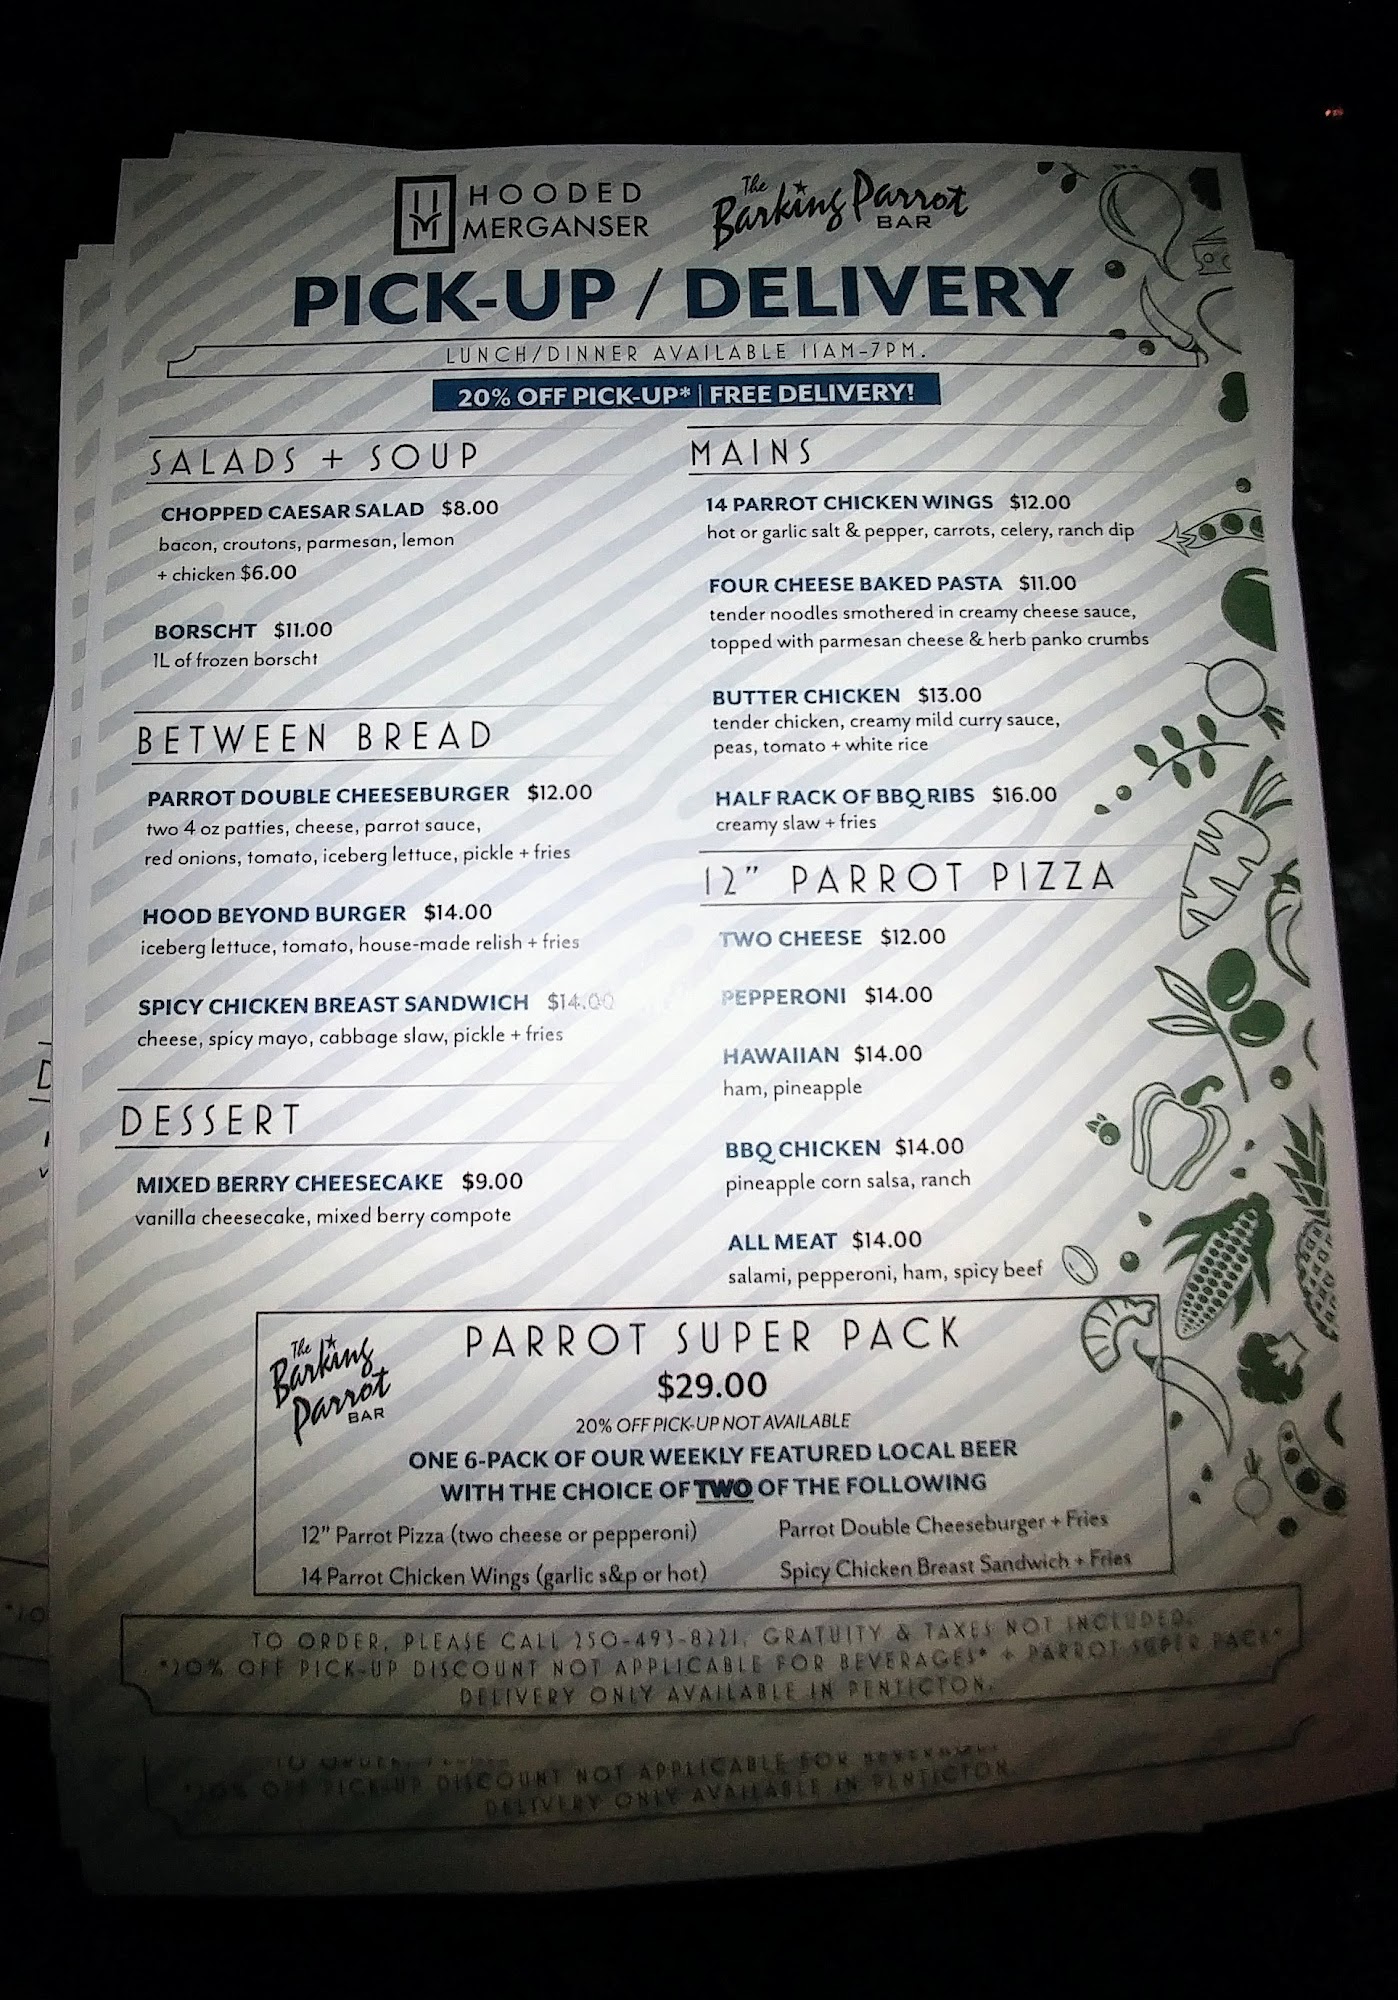 HOODED
MERGANSER
The Barking Parrot
BAR
PICK-UP / DELIVERY
LUNCH/DINNER AVAILABLE 11AM-7PM.
20% OFF PICK-UP* | FREE DELIVERY!
SALADS + SOUP
CHOPPED CAESAR SALAD $8.00
bacon, croutons, parmesan, lemon
+ chicken $6.00
BORSCHT $11.00
1L of frozen borscht
BETWEEN BREAD
PARROT DOUBLE CHEESEBURGER $12.00
two 4 oz patties, cheese, parrot sauce,
red onions, tomato, iceberg lettuce, pickle + fries
HOOD BEYOND BURGER $14.00
iceberg lettuce, tomato, house-made relish + fries
SPICY CHICKEN BREAST SANDWICH $14.00
cheese, spicy mayo, cabbage slaw, pickle + fries
DESSERT
MIXED BERRY CHEESECAKE $9.00
vanilla cheesecake, mixed berry compote
MAINS
14 PARROT CHICKEN WINGS $12.00
hot or garlic salt & pepper, carrots, celery, ranch dip
FOUR CHEESE BAKED PASTA $11.00
tender noodles smothered in creamy cheese sauce,
topped with parmesan cheese & herb panko crumbs
BUTTER CHICKEN $13.00
tender chicken, creamy mild curry sauce,
peas, tomato + white rice
HALF RACK OF BBQ RIBS $16.00
creamy slaw + fries
12" PARROT PIZZA
TWO CHEESE $12.00
PEPPERONI $14.00
HAWAIIAN $14.00
ham, pineapple
BBQ CHICKEN $14.00
pineapple corn salsa, ranch
ALL MEAT $14.00
salami, pepperoni, ham, spicy beef
The Barking Parrot
BAR
PARROT SUPER PACK
$29.00
20% OFF PICK-UP NOT AVAILABLE
ONE 6-PACK OF OUR WEEKLY FEATURED LOCAL BEER
WITH THE CHOICE OF TWO OF THE FOLLOWING
12" Parrot Pizza (two cheese or pepperoni)
Parrot Double Cheeseburger + Fries
14 Parrot Chicken Wings (garlic s&p or hot)
Spicy Chicken Breast Sandwich + Fries
TO ORDER, PLEASE CALL 250-493-8221, GRATUITY & TAXES NOT INCLUDED.
*20% OFF PICK-UP DISCOUNT NOT APPLICABLE FOR BEVERAGES* + PARROT SUPER PACK*
DELIVERY ONLY AVAILABLE IN PENTICTON.
TO ORDER,
*20% OFF PICK-UP DISCOUNT NOT APPLICABLE FOR
DELIVERY ONLY AVAILABLE IN PENTICTON